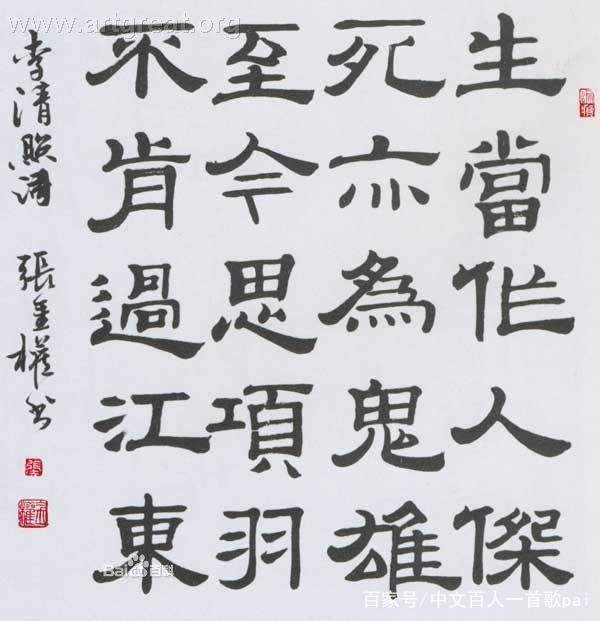 生當作人傑
死亦為鬼雄
至今思項羽
不肯過江東
李清照詩
張權书
www.artgreat.org
Bai百科
百家号/中文百人一首歌pai